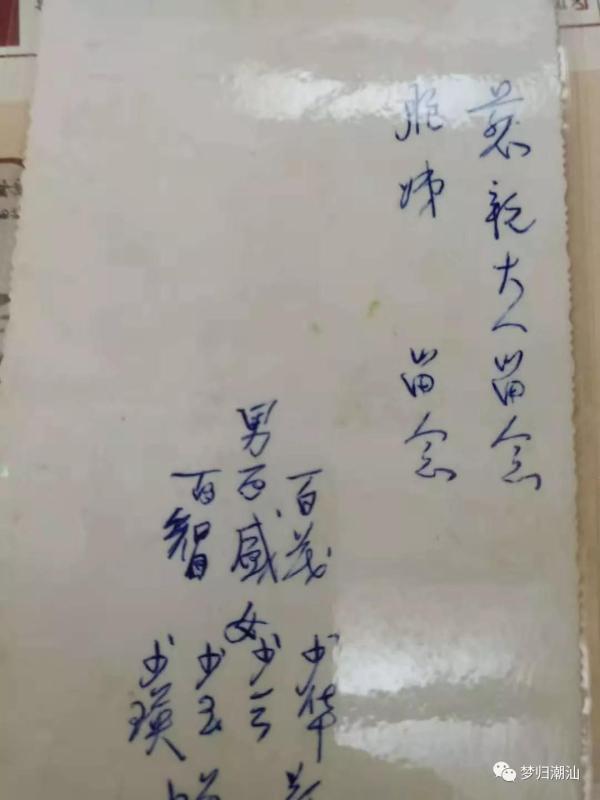 慈親大人留念
胞姊 留念
百茂 少华
男百盛 女少云
百智 少玉
少瑛
梦归潮汕